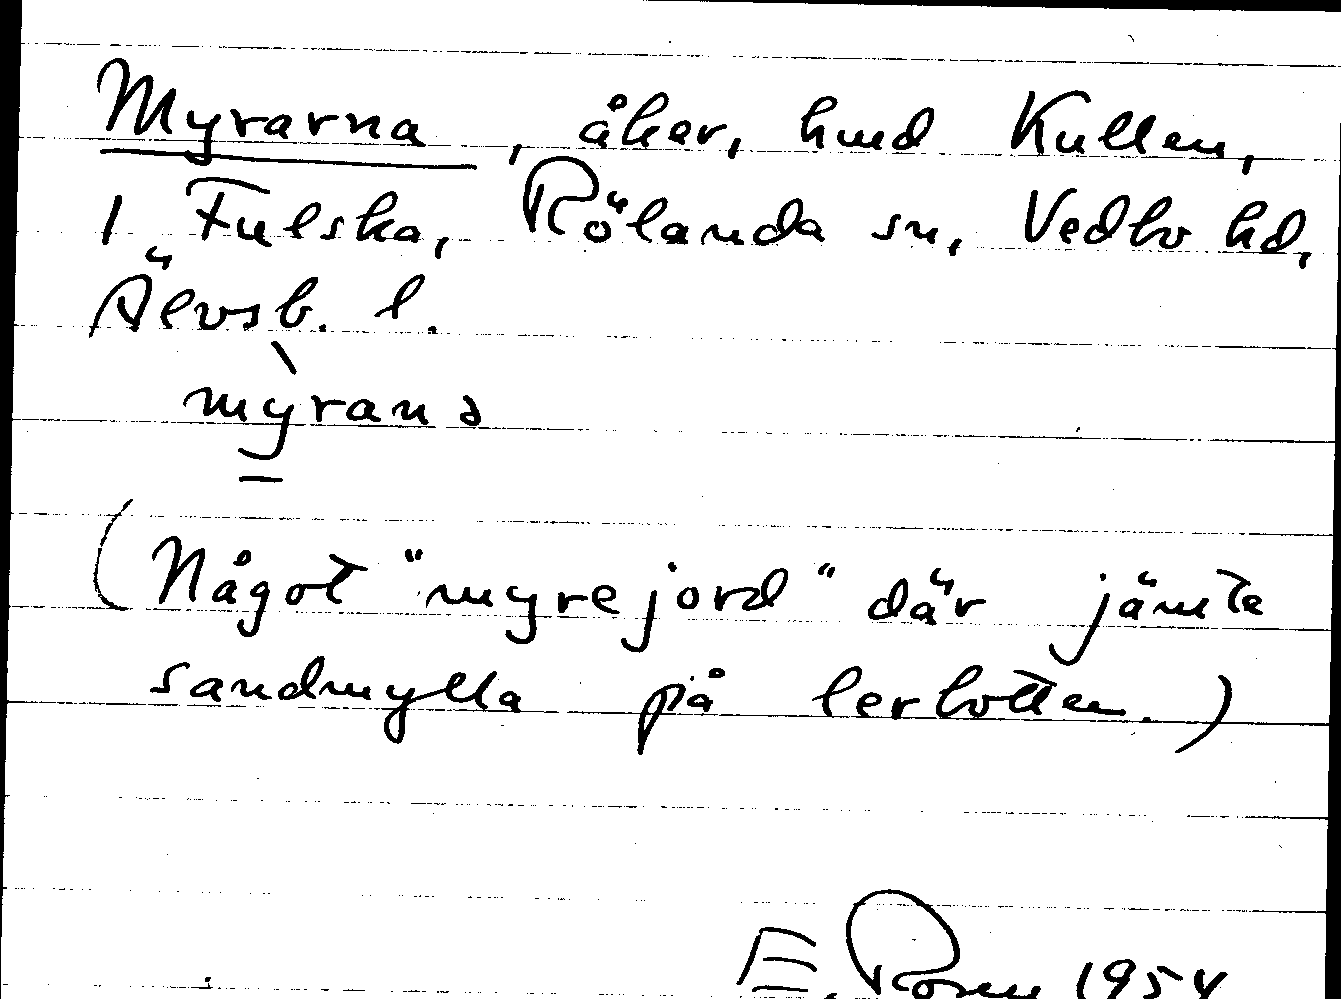 Myrarna, åker, hmd Kullen,
1 Fulska, Rölanda sn, Vedbo hd,
Älvsb. l.
mỳranə
(Något "myrejord" där jämte
sandmylla på lerbotten.)
E. 1954